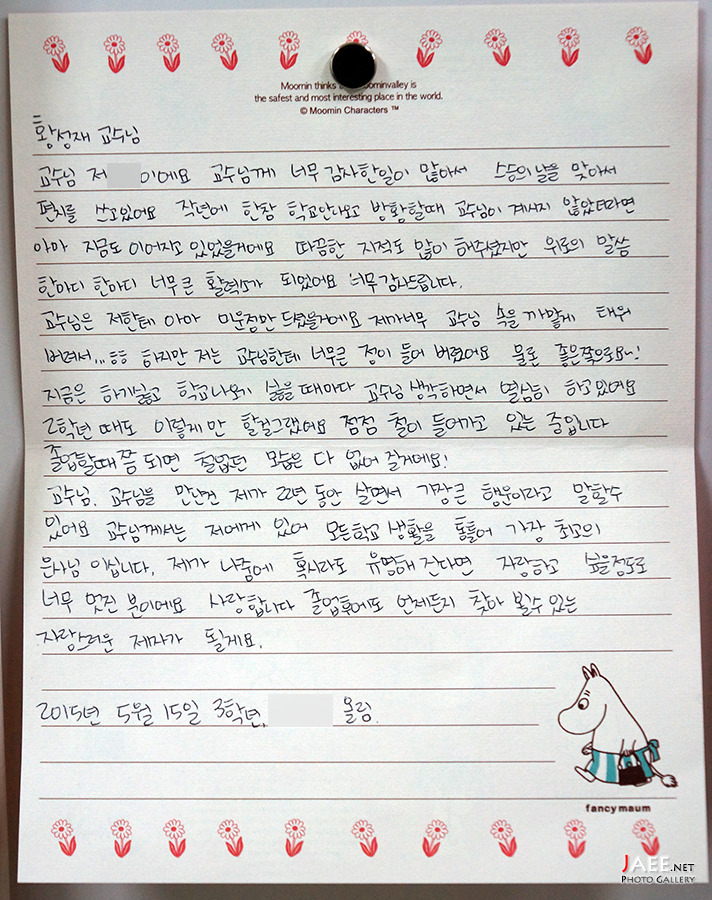 Moomin thinks Moominvalley is
the safest and most interesting place in the world.
© Moomin Characters ™
황성재 교수님
교수님 저 이에요 교수님께 너무 감사한일이 많아서 스승의날을 맞아서
편지를 쓰고있어요 작년에 한참 학교안나오고 방황할때 교수님이 계셔지 않았더라면
아마 지금도 이어지고 있었을거에요 따끔한 지적도 많이 해주셨지만 위로의 말씀
한마디 한마디 너무큰 활력소가 되었어요 너무감사드립니다.
교수님은 저한테 아마 미운점만 드렸을거에요 제가너무 교수님 속을 까맣게 태워
버려서... ㅎㅎ 하지만 저는 교수님한테 너무큰 정이 들어 버렸어요 물론 좋은쪽으로요~!
지금은 하기싫고 학교나오기 싫을때마다 교수님생각하면서 열심히 하고있어요
2학년 때도 이렇게만 할걸그랬어요 점점 철이 들어가고 있는 중입니다
졸업할때쯤 되면 철없던 모습은 다 없어질거에요!
교수님. 교수님을 만난건 제가 22년동안 살면서 가장큰 행운이라고 말할수
있어요 교수님께서는 저에게 있어 모든학교생활을 통틀어 가장 최고의
은사님 이십니다. 제가 나중에 혹시라도 유명해진다면 자랑하고 싶을정도로
너무 멋진 분이에요 사랑합니다 졸업후에도 언제든지 찾아 뵐수있는
자랑스러운 제자가 될게요.
2015년 5월 15일 3학년. 올림.
fancymaum
JAEE.NET
PHOTO GALLERY